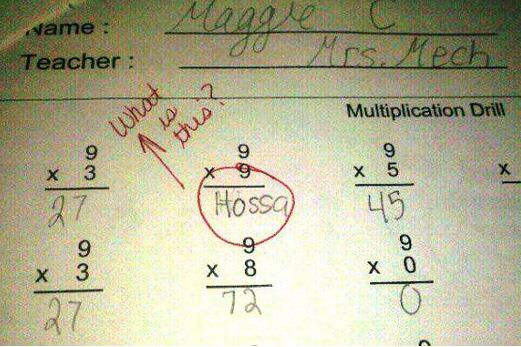 Name : Maggie C
Teacher : Mrs. Mech
What is this?
Multiplication Drill
9 9 9
x 3 x 9 x 5 x
27 Hossa 45
9 9 9
x 3 x 8 x 0
27 72 0